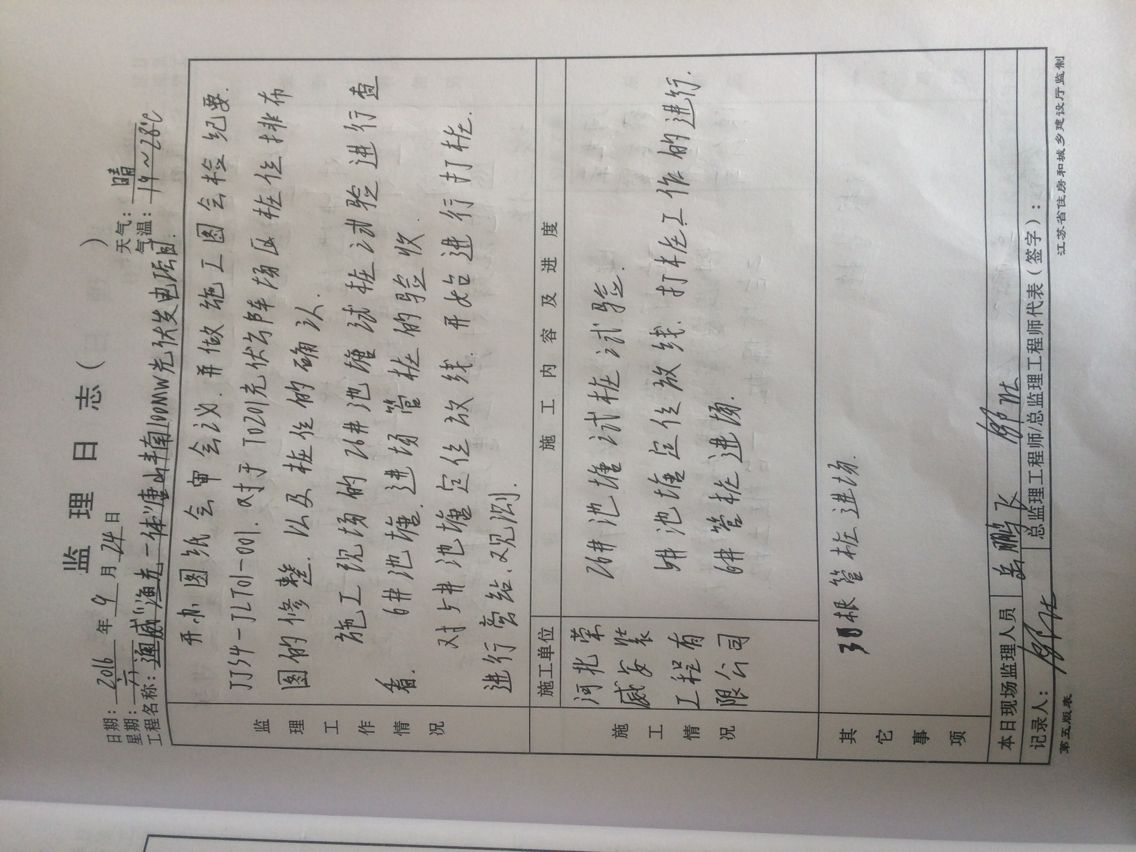 监理日志( 日 期 )
日期：2016年9月24日
星期：六
天气：晴
气温：19~28℃
工程名称：通威"渔光一体"唐山丰南100MW光伏发电项目.
监理工作情况
开办图纸会审会议.并做施工图会检纪要.
JJS4-JLT01-001.对于T0201光伏方阵场区桩位排布
图的修整.以及桩位的确认.
施工现场的26#池塘试桩试验进行查
看.6#池塘.进场管桩的验收.
对5#池塘定位放线.开始进行打桩.
进行旁站.观测.
施工情况
施工单位
施工内容及进度
河北荣
威安装
工程有
限公司
26#池塘试桩试验.
5#池塘定位放线.打桩工作的进行.
6#管桩进场.
其它事项
30根管桩进场.
本日现场监理人员
岳鹏飞
记录人：
总监理工程师/总监理工程师代表(签字)：
第五版表
江苏省住房和城乡建设厅监制